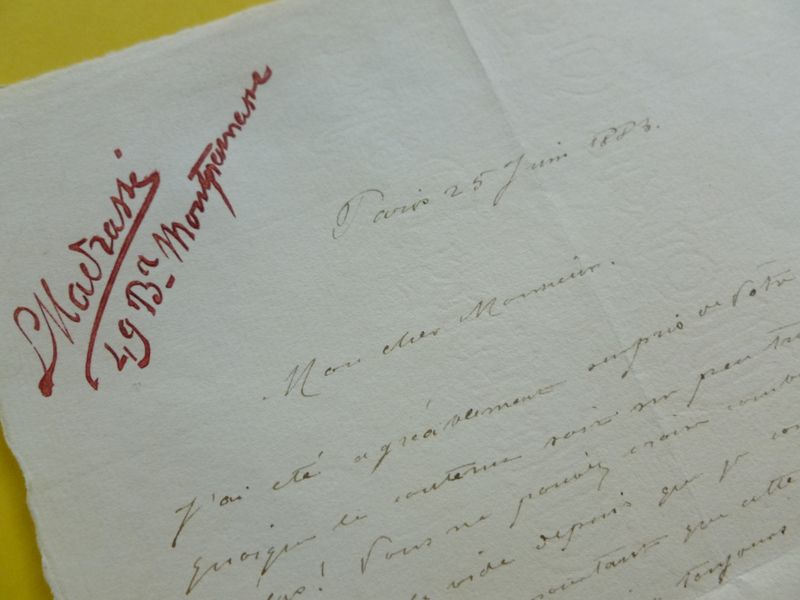 L Madrassi
49 Bd Montparnasse
Paris 25 Juin 1883.
Mon cher Monsieur.
J'ai été agréablement surpris de votre
quoique le contenu soit un peu
Vous ne pouvez croire
vide depuis que je
que cette
toujours